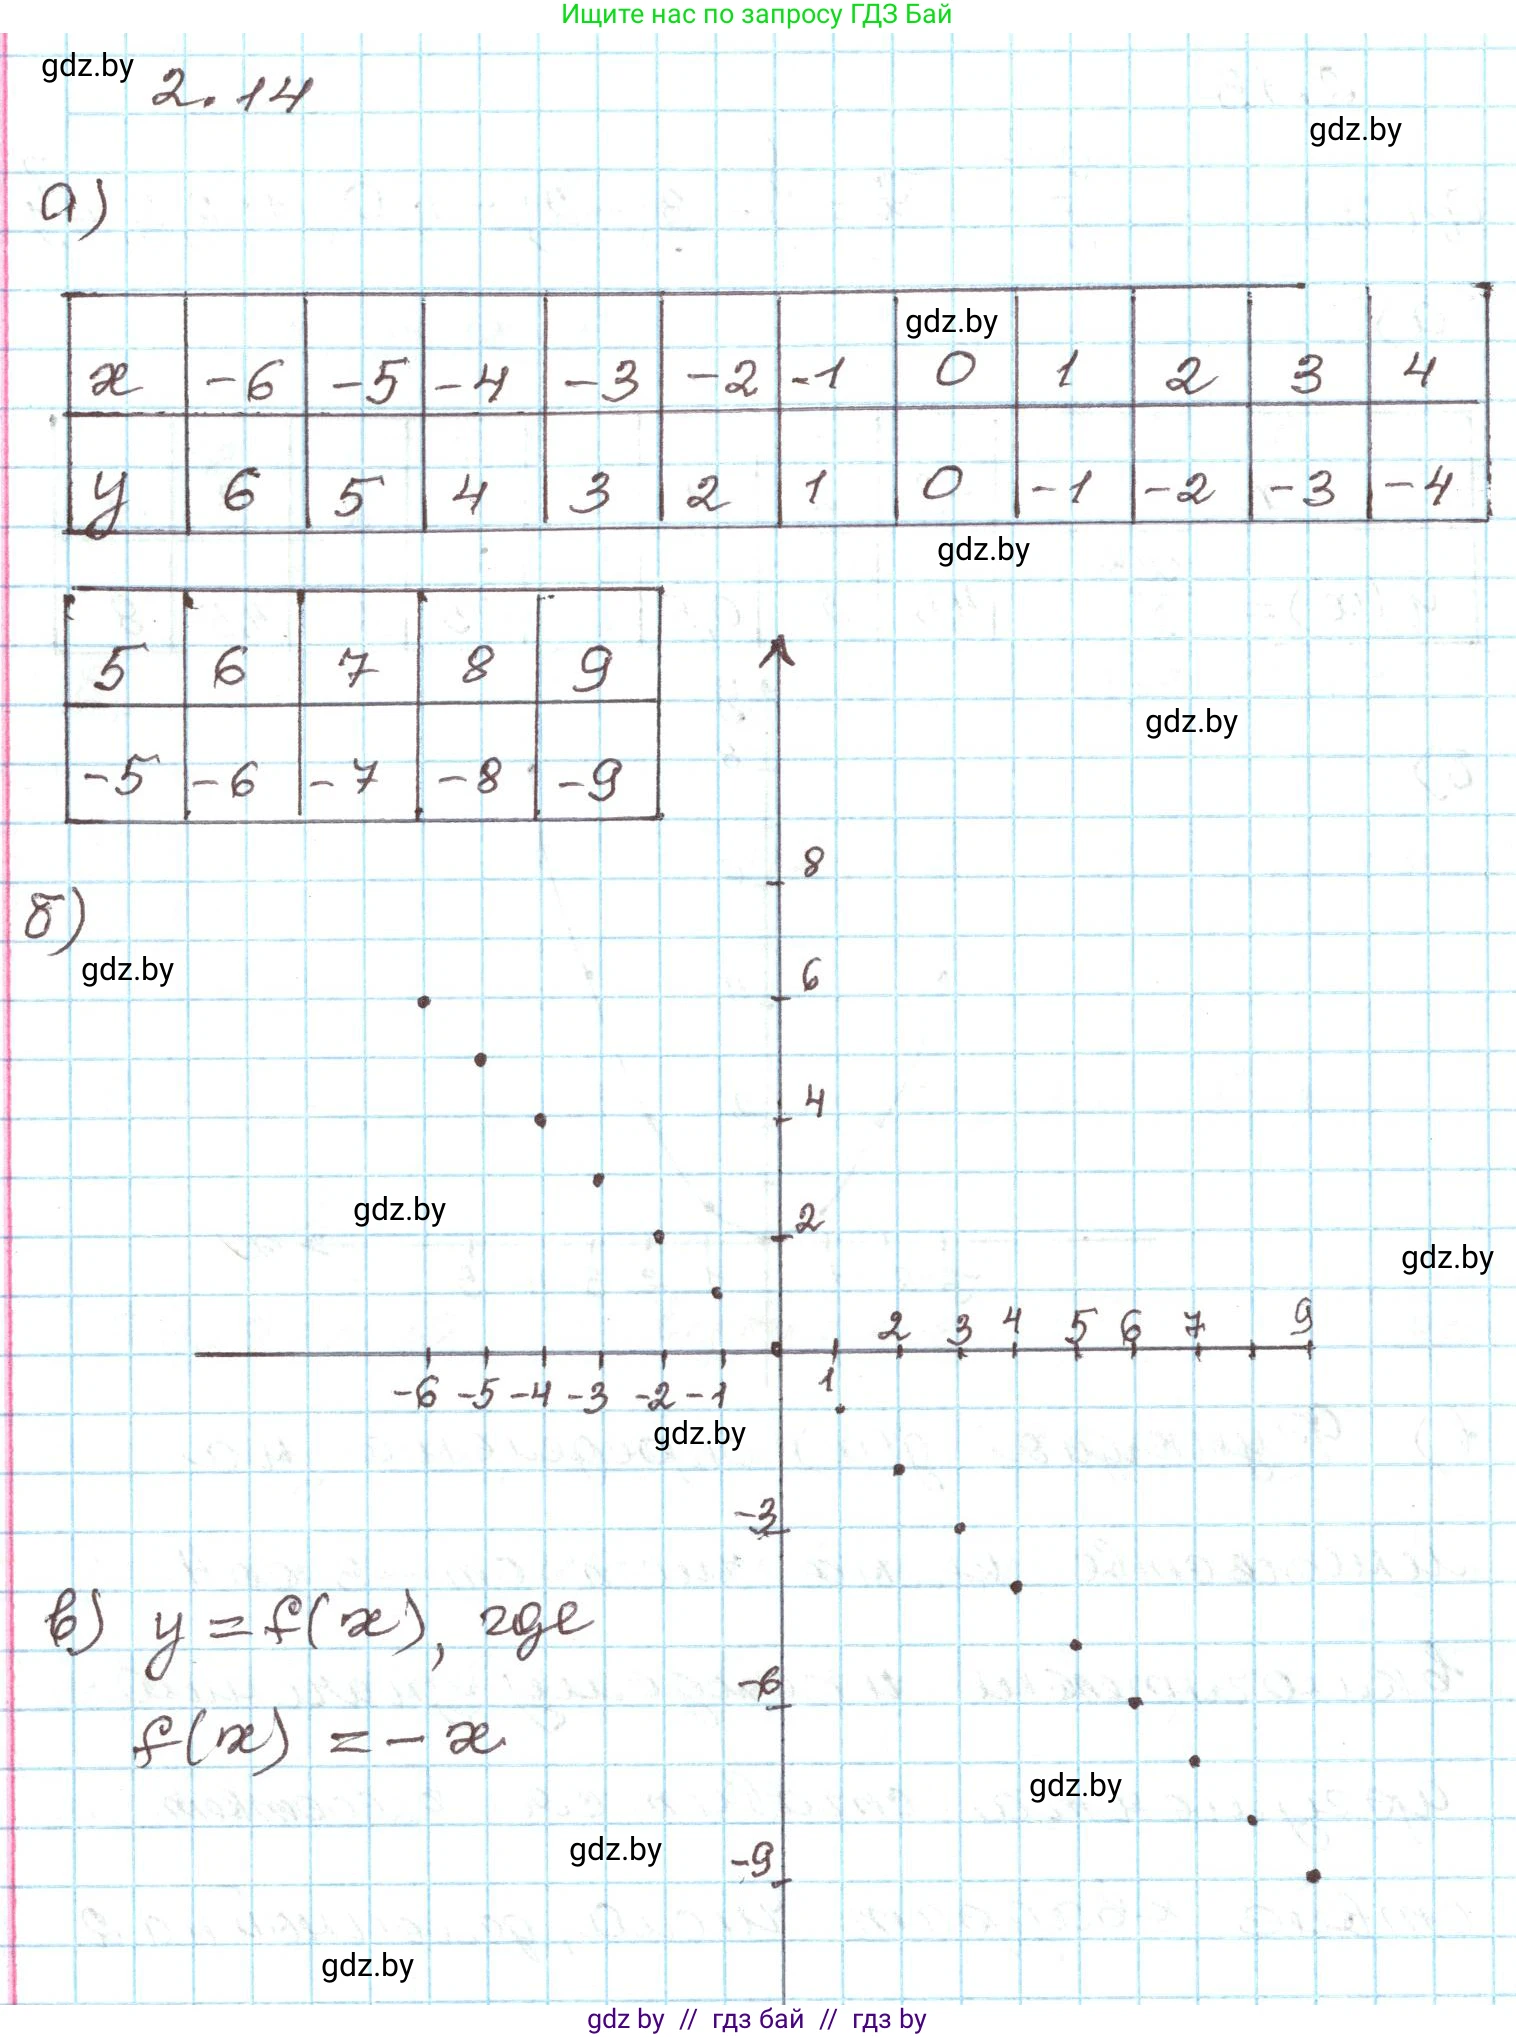 Ищите нас по запросу ГДЗ Бай
gdz.by
2.14
gdz.by
а)
gdz.by
x -6 -5 -4 -3 -2 -1 0 1 2 3 4
y 6 5 4 3 2 1 0 -1 -2 -3 -4
gdz.by
5 6 7 8 9
-5 -6 -7 -8 -9
gdz.by
8
б)
gdz.by
6
4
gdz.by
2
gdz.by
2 3 4 5 6 7 9
-6 -5 -4 -3 -2 -1 1
gdz.by
-3
в) y = f(x), где
-6
f(x) = -x
gdz.by
gdz.by
-9
gdz.by
gdz by // гдз бай // гдз by